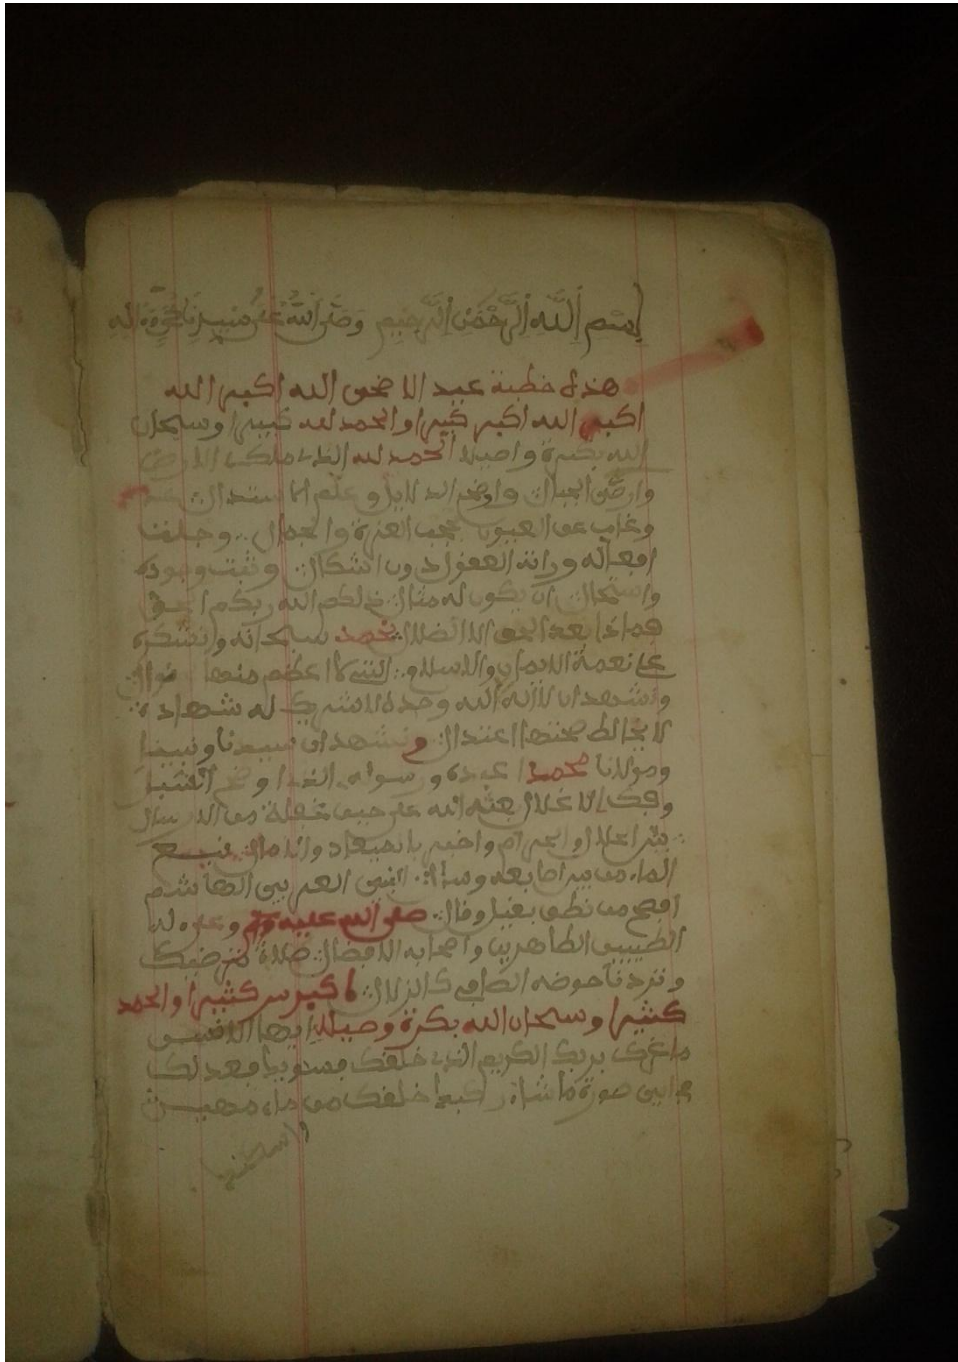 بسم الله الرحمن الرحيم وصلى الله على
هذه خطبة عيد الاضحى الله اكبر الله
اكبر الله اكبر كبيرا والحمد لله كثيرا وسبحان
الله بكرة واصيلا الحمد لله الذي ملك الارض
وارسى الجبال واوضح الدلايل وعلم
وغاب عن العيون بحجب العزة والجمال
افعاله العقول دون اشكال وثبت وجوده
واستحال ان يكون له مثال ذلكم الله ربكم الحق
فماذا بعد الحق الا الضلال نحمده سبحانه ونشكره
على نعمة الايمان والاسلام التي لا اعظم منها نوال
واشهد ان لا اله الا الله وحده لا شريك له شهادة
لا يخالط صحتها اعتدال ونشهد ان سيدنا ونبينا
ومولانا محمدا عبده ورسوله الذي
وفك الاغلال بعثه الله على حين غفلة من الارسال
الحلال والحرام واخبر
الماء من بين اصابعه وسال النبي العربي الهاشم
افصح من نطق بقيل وقال صلى الله عليه وسلم وعلى اله
الطيبين الطاهرين واصحابه الافضال صلاة ترضيك
وتردنا حوضه الصافي كالزلال كثيرا والحمد
كثيرا وسبحان الله بكرة وصيلا ايها الانس
ما غرك بربك الكريم الذي خلقك فسويك فعدلك
في اي صورة ما شاء ركبك خلقك من ماء مهين